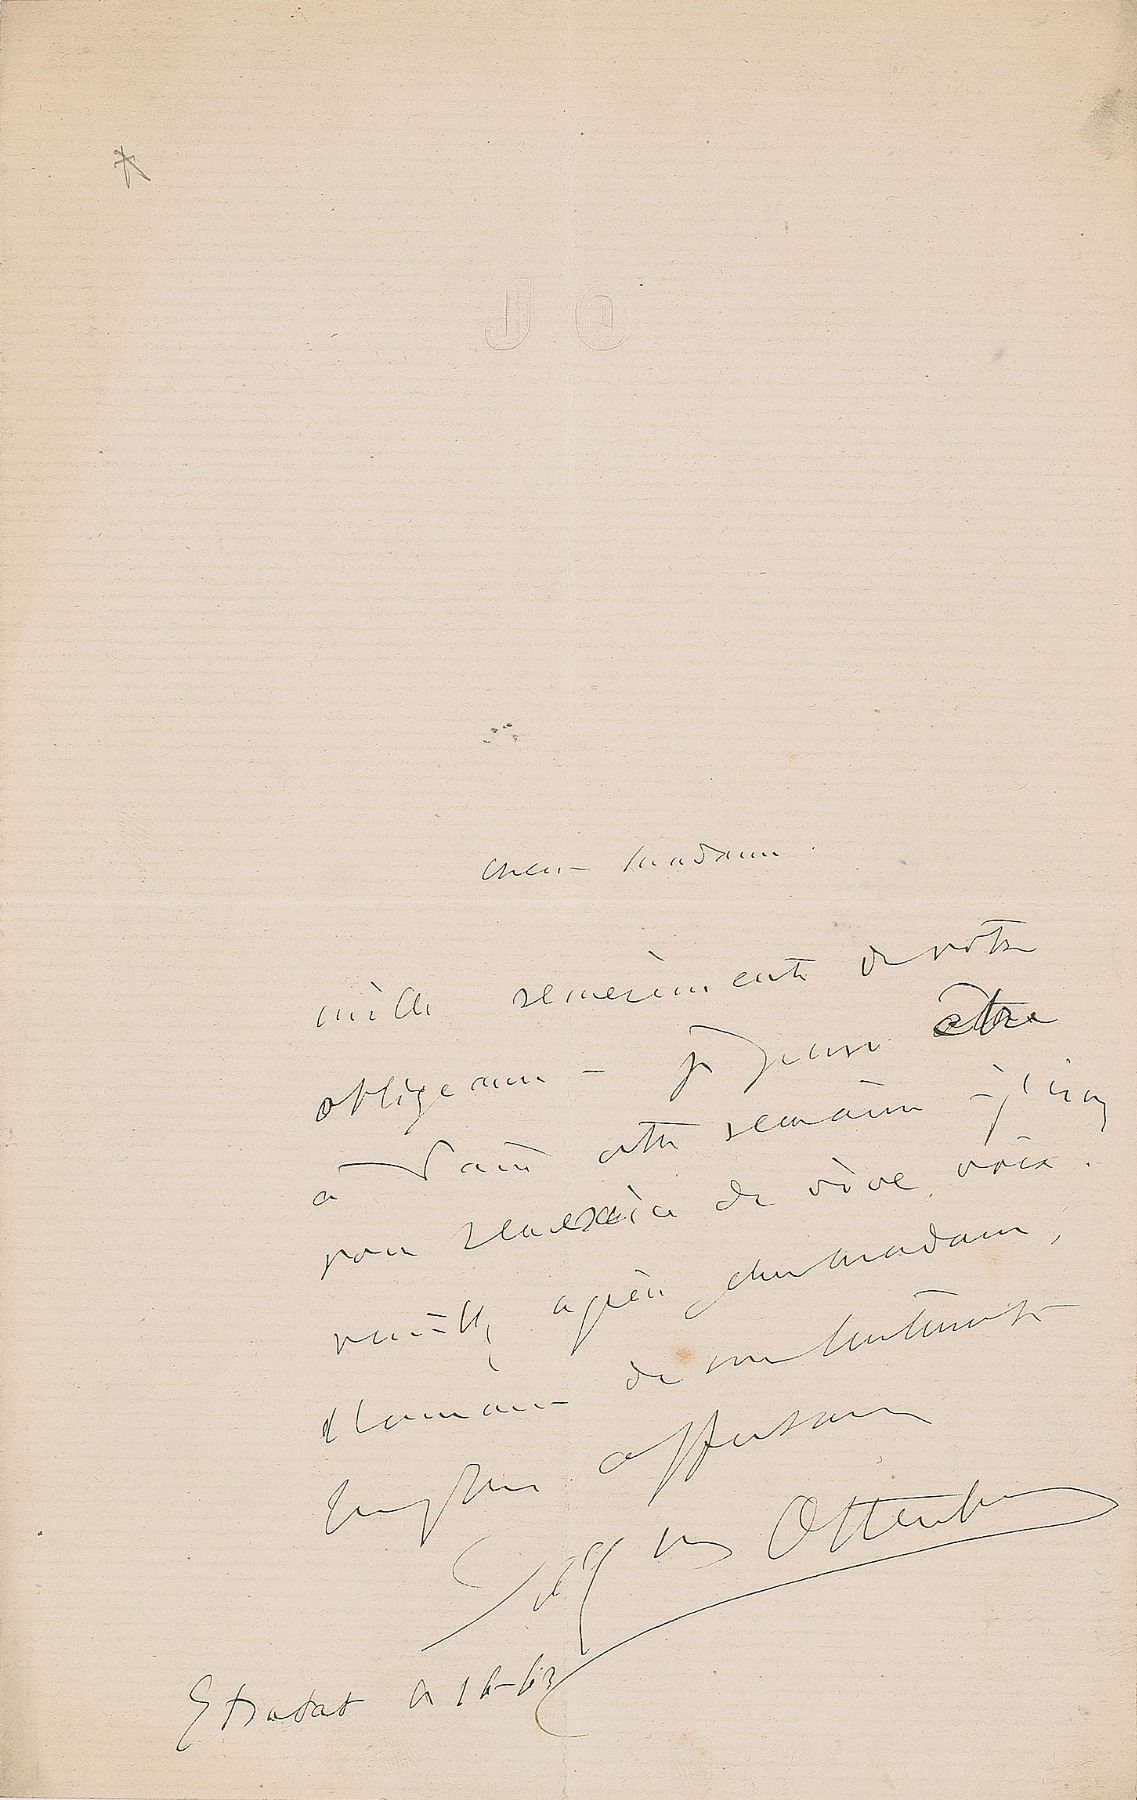 JO
chere Madame.
mille remerciments de votre
obligeance – je pense être
à Paris cette semaine – j'irai
vous remercier de vive voix.
veuillez agréer chere madame,
de mes sentiments
affectueux
Jacques Offenbach
Etretat